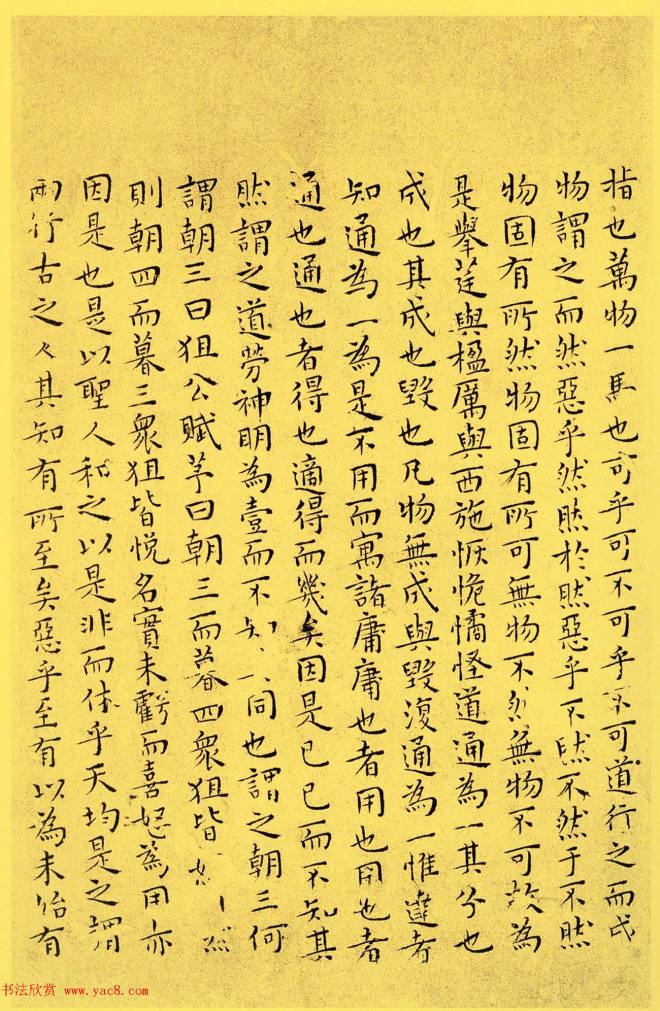 指也萬物一馬也可乎可不可乎不可道行之而成
物謂之而然惡乎然然於然惡乎不然不然于不然
物固有所然物固有所可無物不然無物不可故為
是舉莛與楹厲與西施恢恑憰怪道通為一其分也
成也其成也毀也凡物無成與毀復通為一惟達者
知通為一為是不用而寓諸庸庸也者用也用也者
通也通也者得也適得而幾矣因是已已而不知其
然謂之道勞神明為壹而不知同也謂之朝三何
謂朝三曰狙公賦芧曰朝三而暮四眾狙皆
則朝四而暮三眾狙皆悅名實未虧而喜怒為用亦
因是也是以聖人和之以是非而休乎天均是之謂
兩行古之人其知有所至矣惡乎至有以為未始有
书法欣赏 www.yac8.com